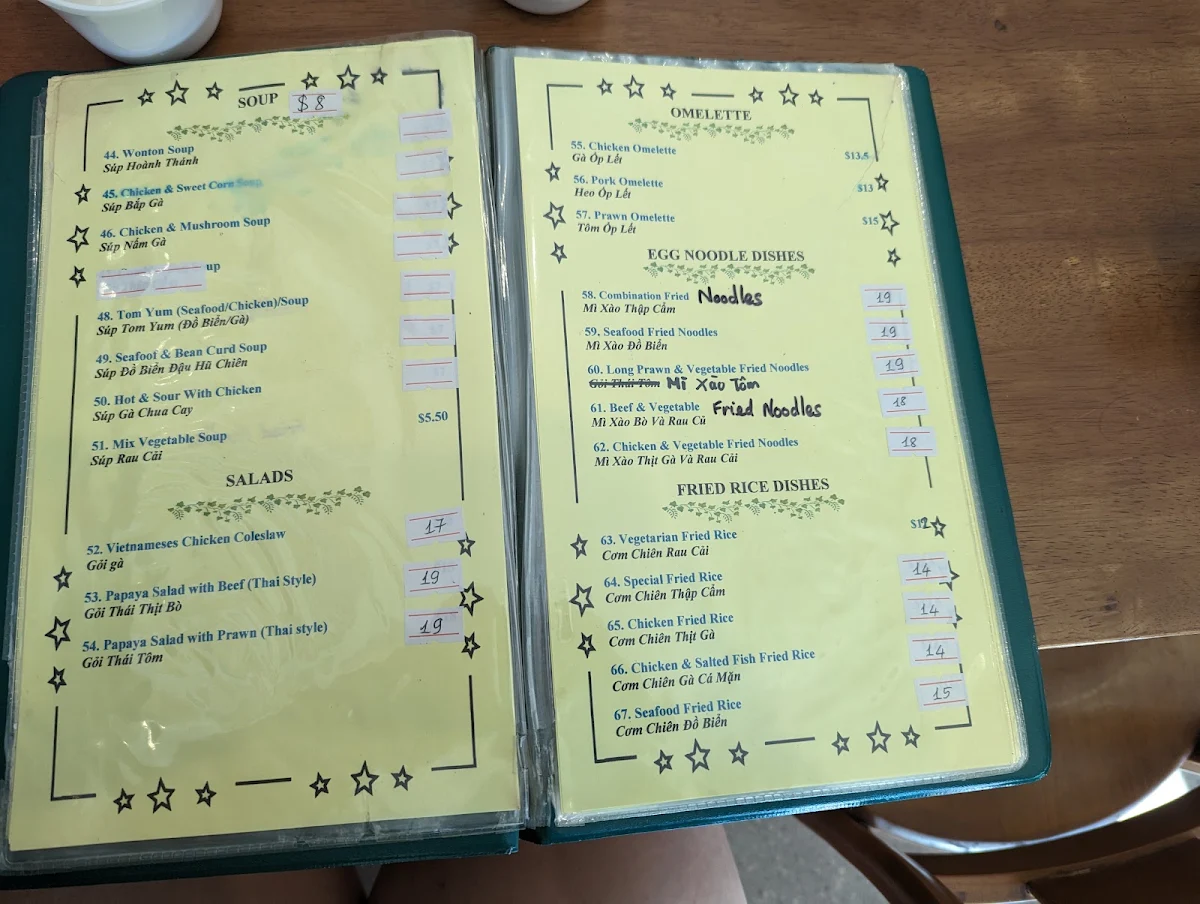 SOUP $8
44. Wonton Soup
Súp Hoành Thánh
45. Chicken & Sweet Corn Soup
Súp Bắp Gà
46. Chicken & Mushroom Soup
Súp Nấm Gà
up
48. Tom Yum (Seafood/Chicken)/Soup
Súp Tom Yum (Đồ Biển/Gà)
49. Seafoot & Bean Curd Soup
Súp Đồ Biển Đậu Hũ Chiên
50. Hot & Sour With Chicken
Súp Gà Chua Cay
51. Mix Vegetable Soup $5.50
Súp Rau Cải
SALADS
52. Vietnameses Chicken Coleslaw 17
Gỏi gà
53. Papaya Salad with Beef (Thai Style) 19
Gõi Thái Thịt Bò
54. Papaya Salad with Prawn (Thai style) 19
Gỏi Thái Tôm
OMELETTE
55. Chicken Omelette $13.5
Gà Ốp Lết
56. Pork Omelette $13
Heo Ốp Lết
57. Prawn Omelette $15
Tôm Ốp Lết
EGG NOODLE DISHES
58. Combination Fried Noodles 19
Mì Xào Thập Cẩm
59. Seafood Fried Noodles 19
Mì Xào Đồ Biển
60. Long Prawn & Vegetable Fried Noodles 19
Gỏi Thái Tôm Mì Xào Tôm
61. Beef & Vegetable Fried Noodles 18
Mì Xào Bò Và Rau Cũ
62. Chicken & Vegetable Fried Noodles 18
Mì Xào Thịt Gà Và Rau Cải
FRIED RICE DISHES
63. Vegetarian Fried Rice $12
Cơm Chiên Rau Cải
64. Special Fried Rice 14
Cơm Chiên Thập Cẩm
65. Chicken Fried Rice 14
Cơm Chiên Thịt Gà
66. Chicken & Salted Fish Fried Rice 14
Cơm Chiên Gà Cá Mặn
67. Seafood Fried Rice 15
Cơm Chiên Đồ Biển